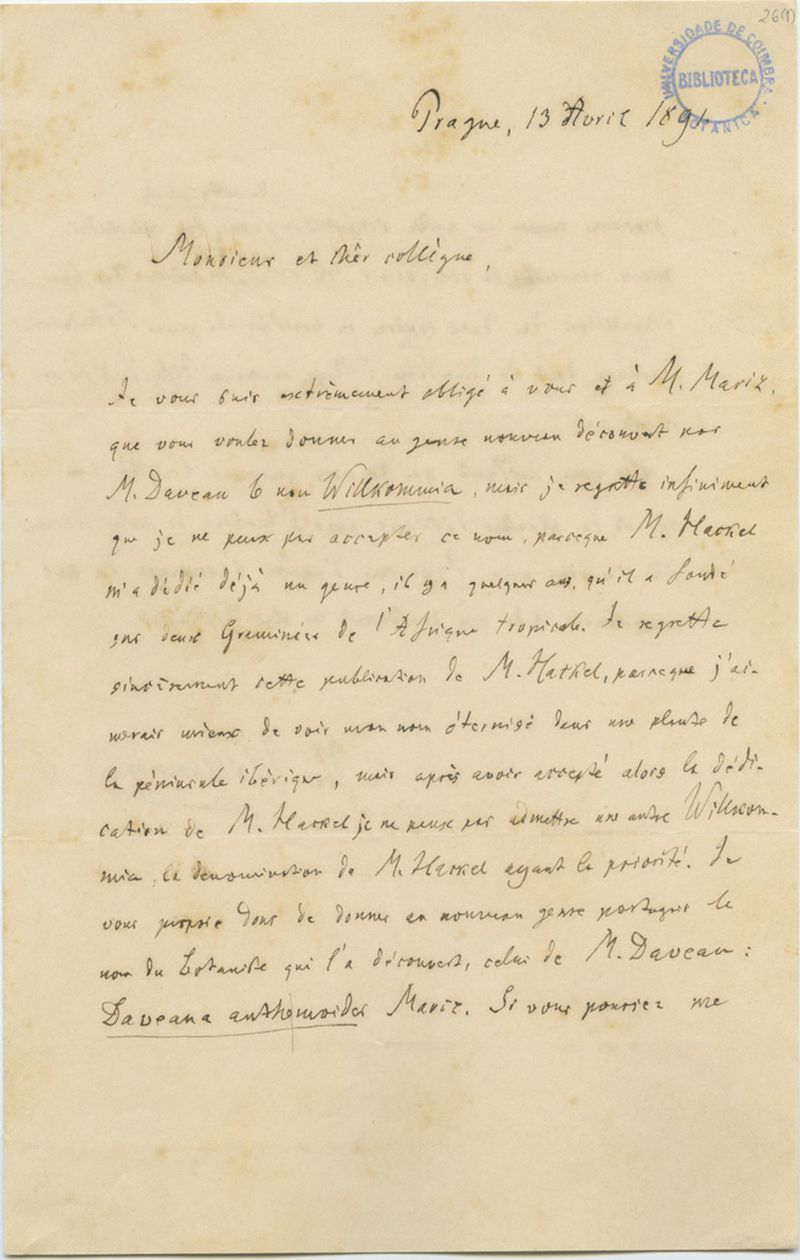 26(1)
UNIVERSIDADE DE COIMBRA
BIBLIOTECA
BOTANICA
Prague, 13 Avril 1891.
Monsieur et chèr collègue,
Je vous suis extrèmement obligé à vous et à M. Mariz,
que vous voulez donner au genre nouveau découvert par
M. Daveau le nom Willkommia, mais je regrette infiniment
que je ne peux pas accepter ce nom, parceque M. Hackel
m'a dédié déjà un genre, il y a quelques ans, qu'il a fondé
sur deux Graminées de l'Afrique tropicale. Je regrette
sincèrement cette publication de M. Hackel, parceque j'ai-
merais mieux de voir mon nom éternisé dans une plante de
la péninsule ibérique, mais après avoir accepté alors la dédi-
cation de M. Hackel je ne peux pas admettre une autre Willkom-
mia, la denomination de M. Hackel ayant la priorité. Je
vous propose donc de donner au nouveau genre portugais le
nom du botaniste qui l'a découvert, celui de M. Daveau:
Daveaua anthemoides Mariz. Si vous pouriez me